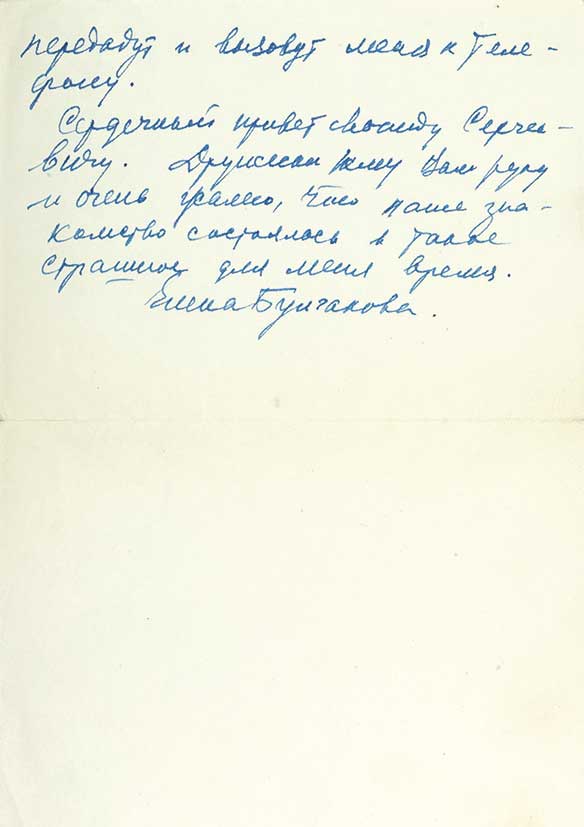 передадут и вызовут меня к теле-
фону.
Сердечный привет Вашему Сергее-
вичу. Дружески жму Вам руку
и очень жалею, что наше зна-
комство состоялось в такое
страшное для меня время.
Елена Булгакова.